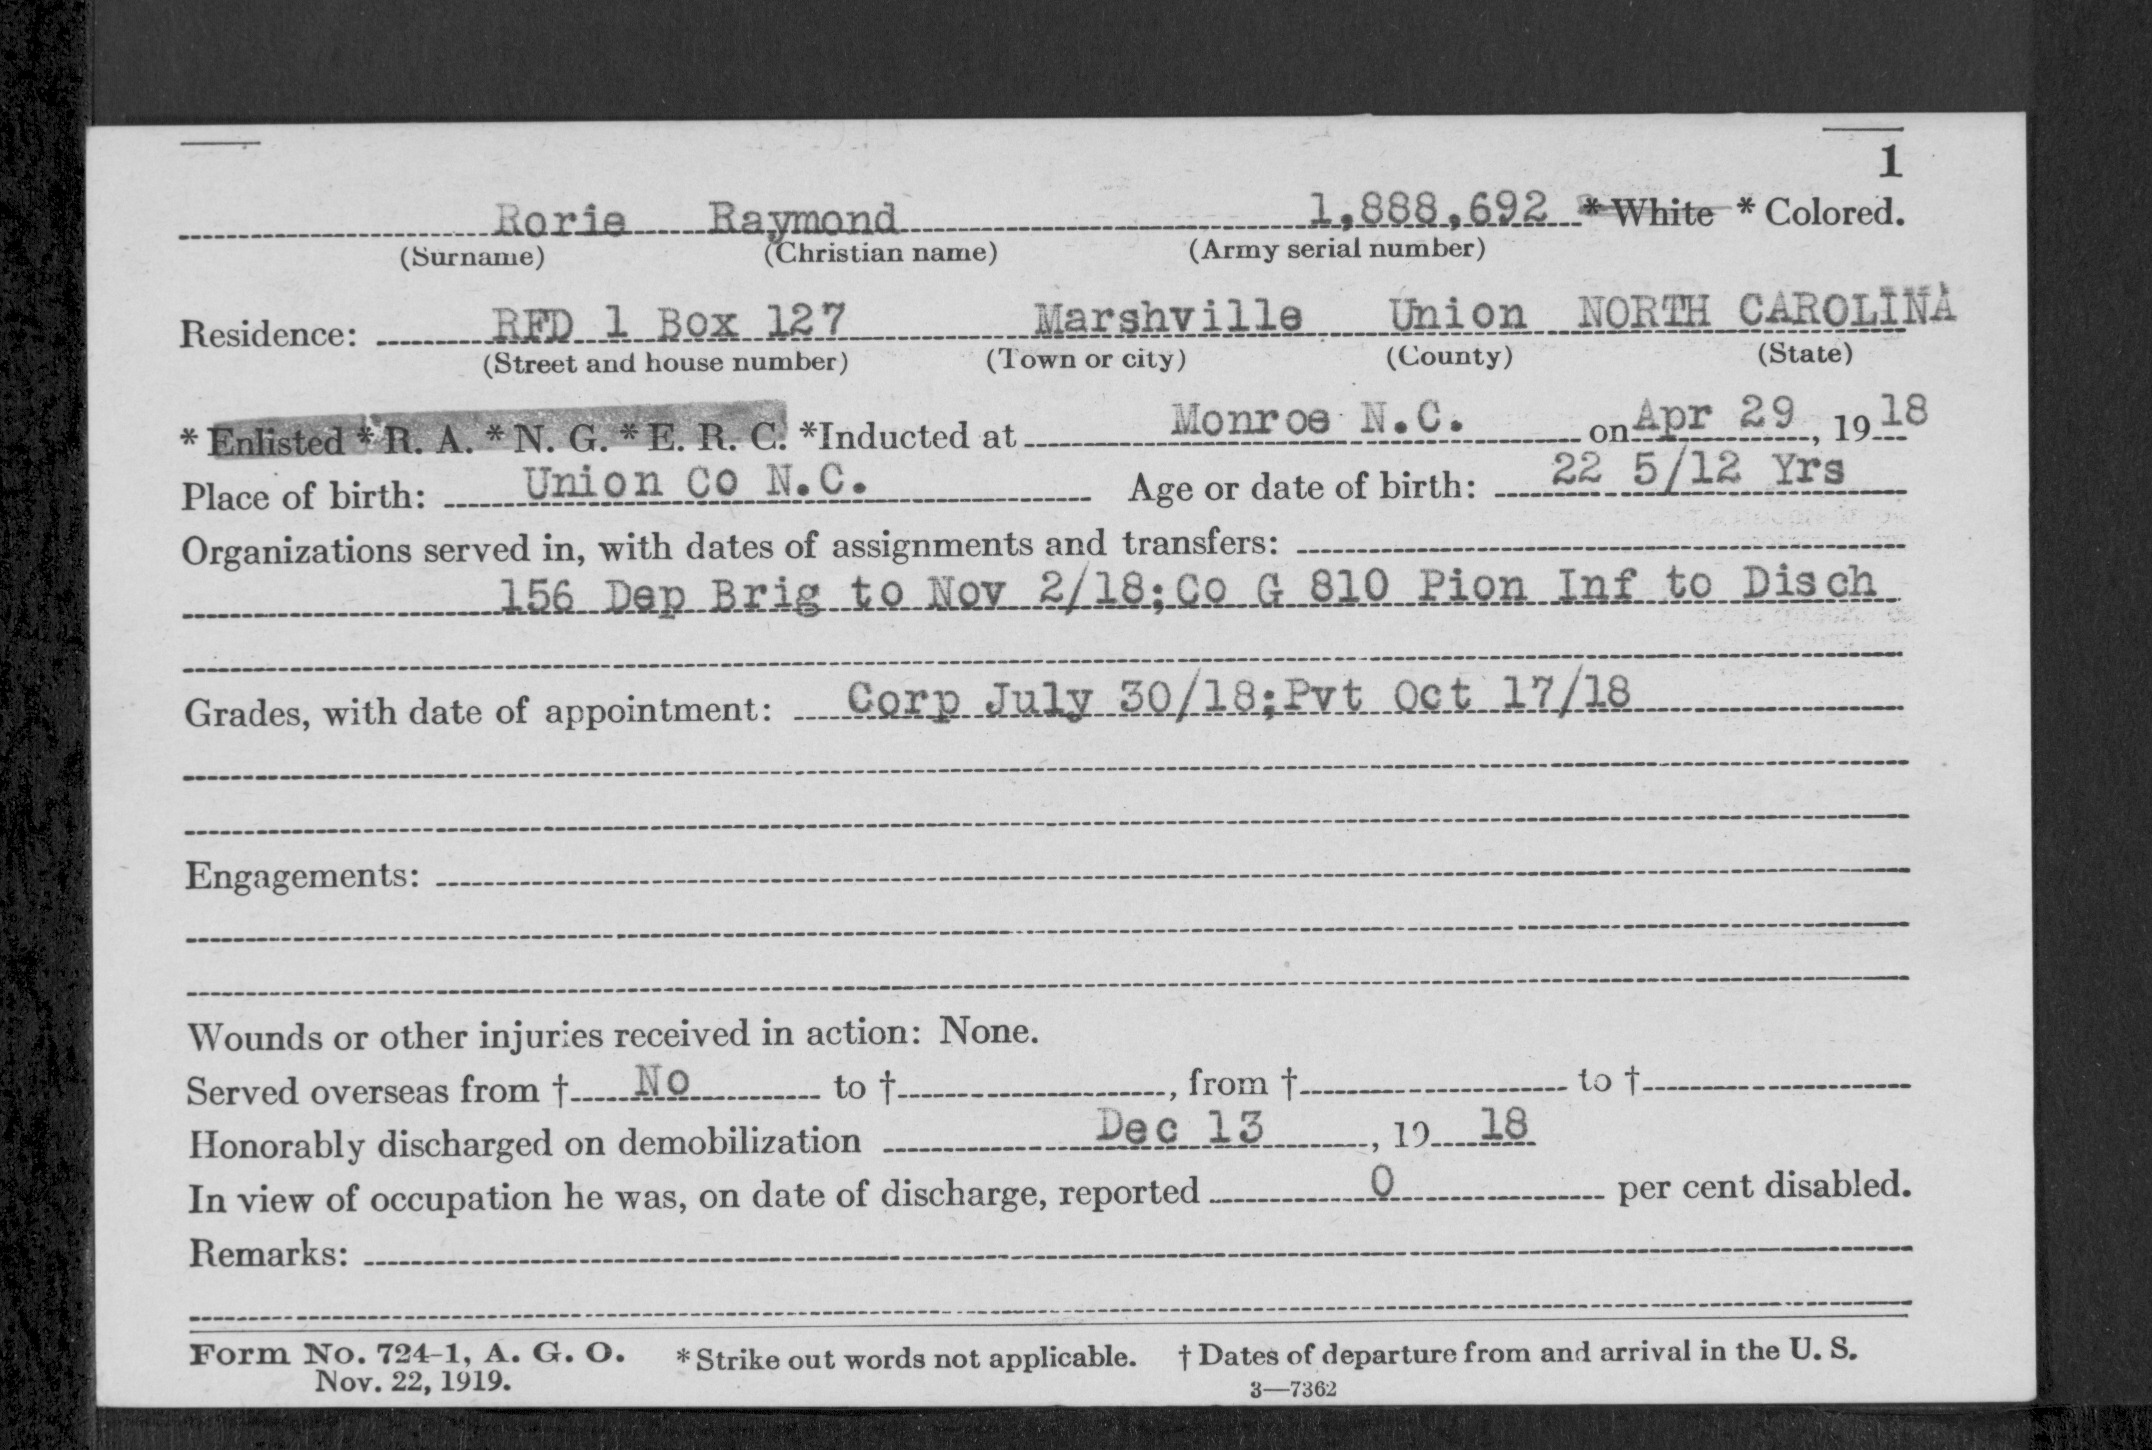 1
Rorie Raymond 1,888,692 * White * Colored.
(Surname) (Christian name) (Army serial number)
Residence: RFD 1 Box 127 Marshville Union NORTH CAROLINA
(Street and house number) (Town or city) (County) (State)
* Enlisted * R. A. * N. G. * E. R. C. *Inducted at Monroe N.C. on Apr 29, 1918
Place of birth: Union Co N.C. Age or date of birth: 22 5/12 Yrs
Organizations served in, with dates of assignments and transfers:
156 Dep Brig to Nov 2/18;Co G 810 Pion Inf to Disch
Grades, with date of appointment: Corp July 30/18;Pvt Oct 17/18
Engagements:
Wounds or other injuries received in action: None.
Served overseas from † No to † , from † to †
Honorably discharged on demobilization Dec 13, 1918
In view of occupation he was, on date of discharge, reported 0 per cent disabled.
Remarks:
Form No. 724-1, A. G. O. * Strike out words not applicable. † Dates of departure from and arrival in the U. S.
Nov. 22, 1919. 3—7362